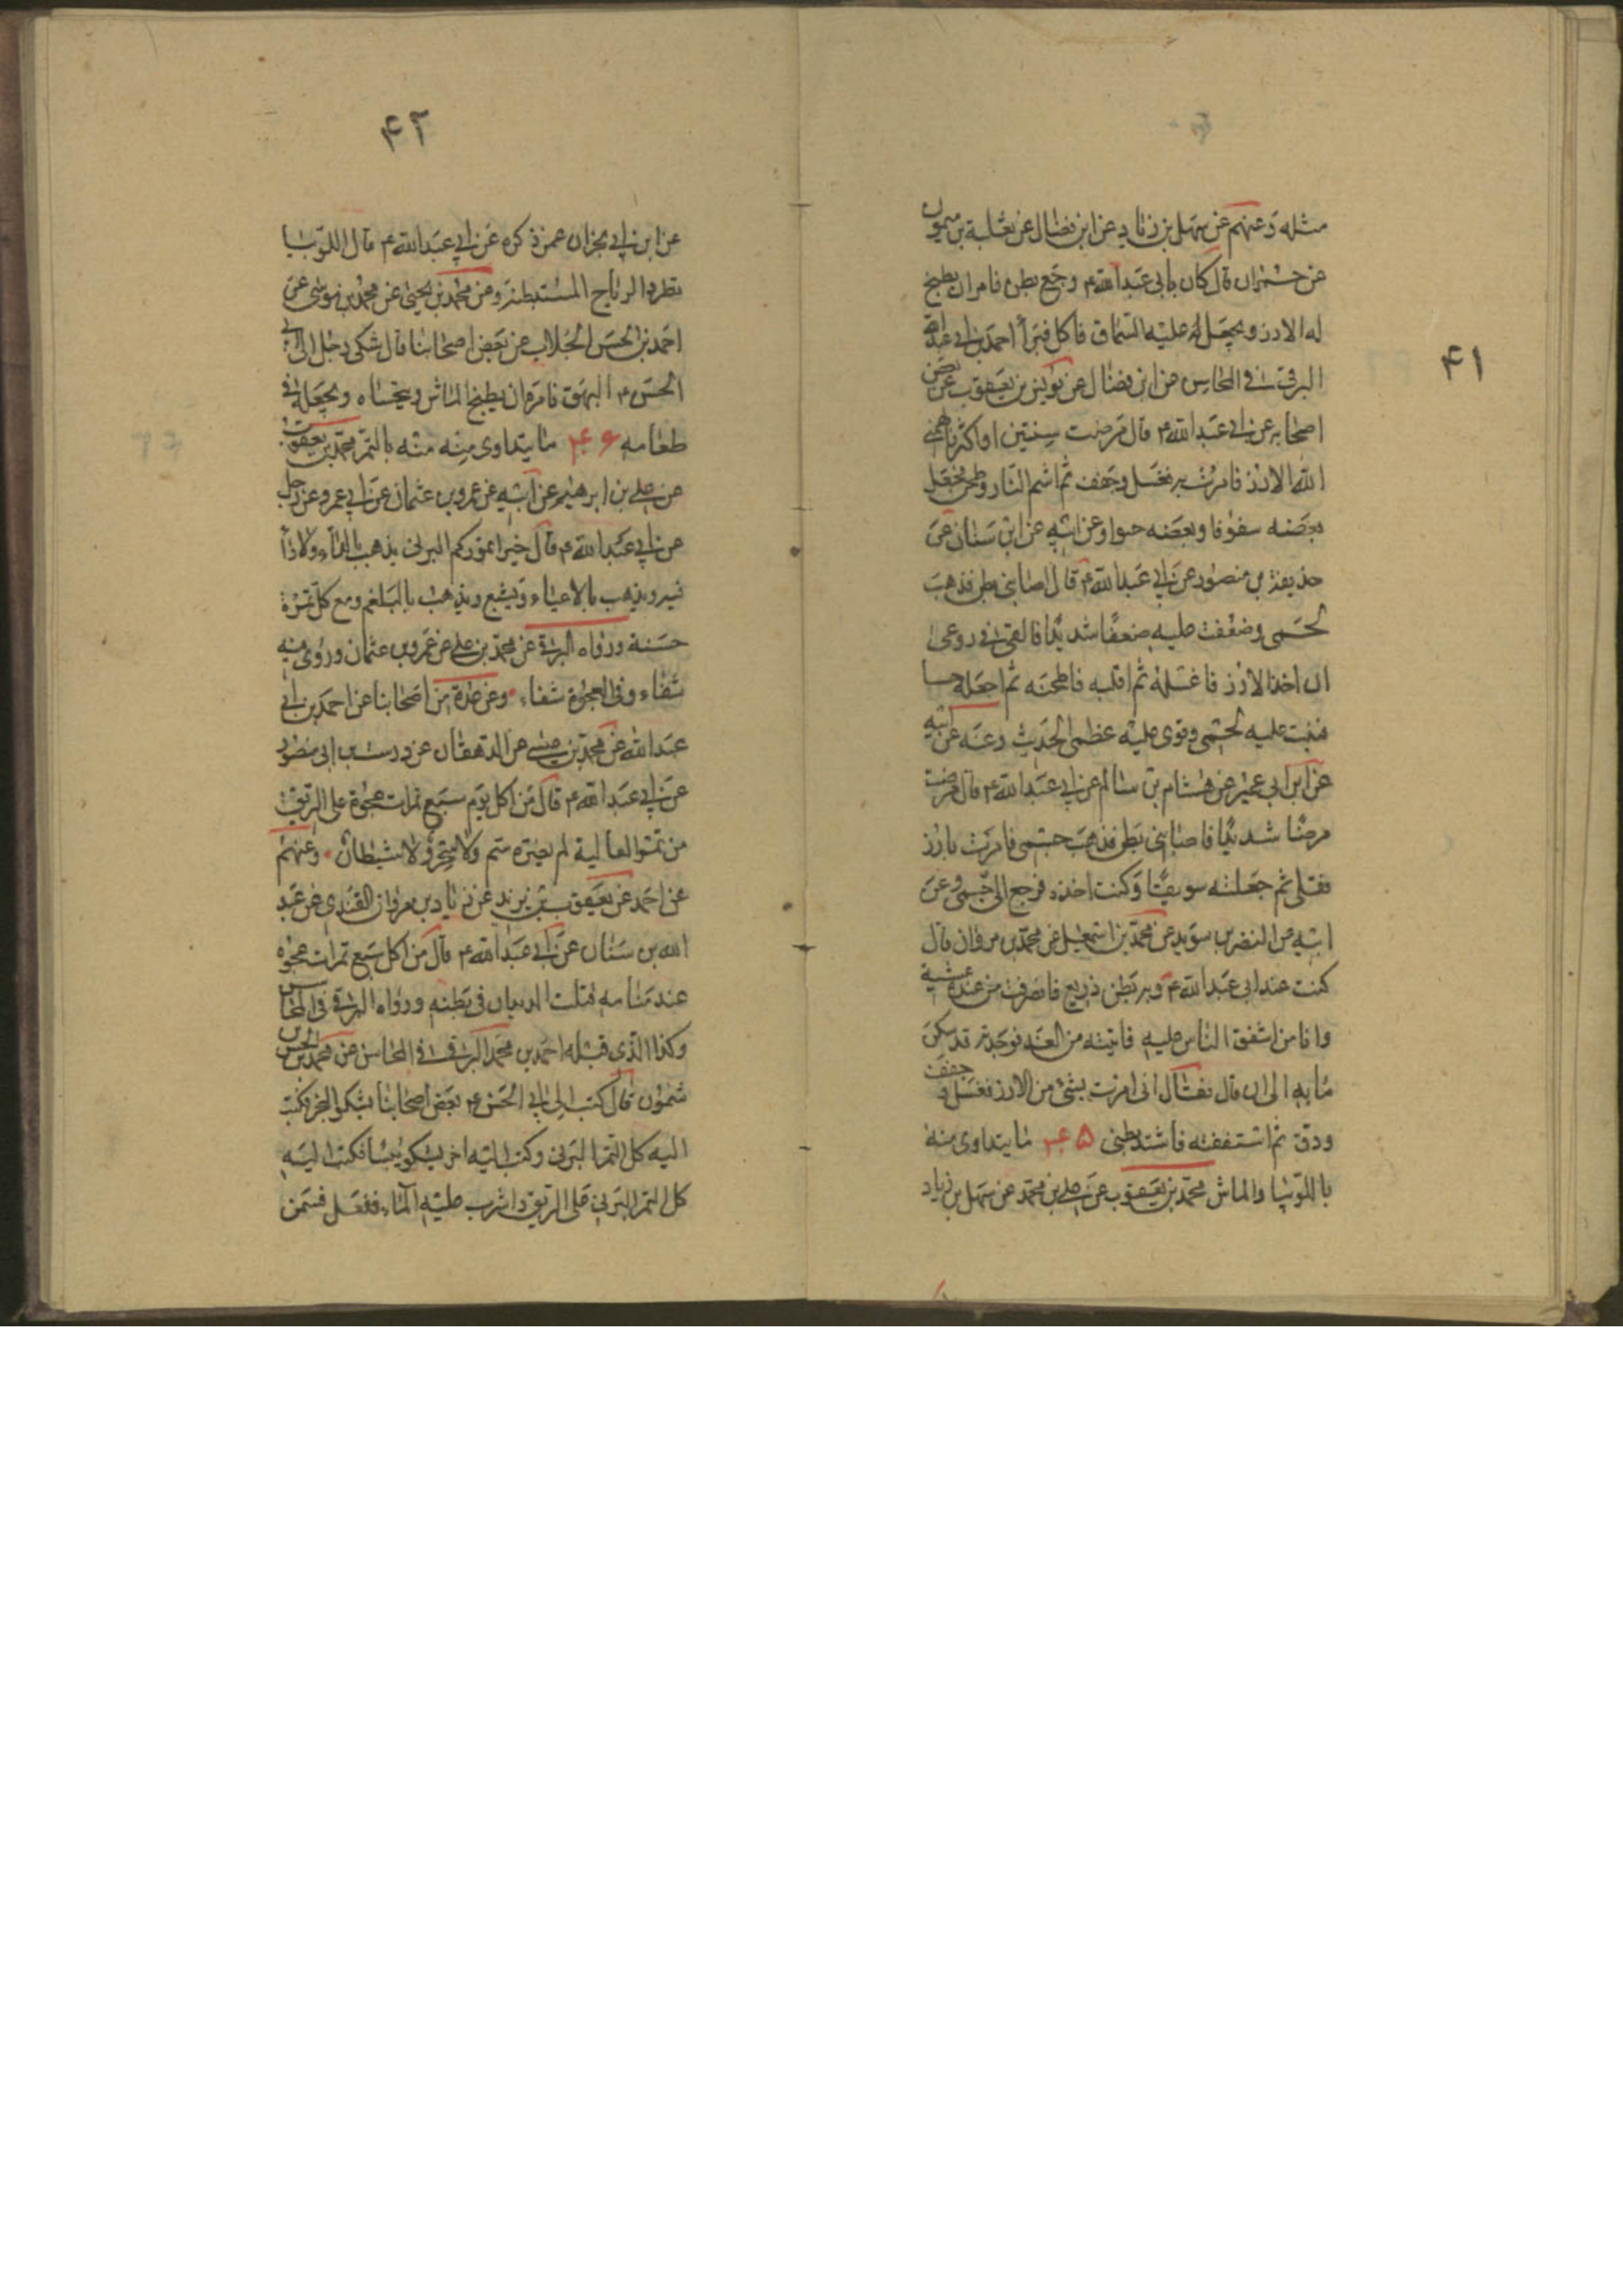 ۴۱
مثله وعنهم عن سهل بن زياد عن ابن فضال عن ثعلبة بن ميمون
عن حمران قال كان بابى عبد الله ع وجع بطن فامر ان يطبخ
له الارز ويجعل له عليه السماق فاكل فبرأ احمد بن ابى عبد الله
البرقى فى المحاسن عن ابن فضال عن يونس بن يعقوب عن بعض
اصحابه عن ابى عبد الله ع قال مرضت سنتين او اكثر فالهمنى
الله الارز فامرت به فغسل وجفف ثم اشم النار وطحن فجعل
بعضه سفوفا وبعضه حسوا وعن ابيه عن ابن سنان عن
حذيفة بن منصور عن ابى عبد الله ع قال اصابنى بطن فذهب
لحمى وضعفت عليه ضعفا شديدا فالقى فى روعى
ان اخذ الارز فاغسله ثم اقليه فاطحنه ثم اجعله حسا
فنبت عليه لحمى وقوى عليه عظمى الحديث وعنه عن ابيه
عن ابن ابى عمير عن هشام بن سالم عن ابى عبد الله ع قال مرضت
مرضا شديدا فاصابنى بطن فذهب جسمى فامرت بارز
فقلى ثم جعلته سويقا وكنت اخذه فرجع الى جسمى وعن
ابيه عن النضر بن سويد عن محمد بن اسمعيل عن محمد بن مروان قال
كنت عند ابى عبد الله ع وبه بطن ذريع فانصرفت من عنده عشية
وانا من اشفق الناس عليه فاتيته من الغد فوجدته قد سكن
ما به الى ان قال فقال انى امرت بشئ من الارز فغسل وجفف
ودق ثم استففته فاشتد بطنى ۴۵ ما يتداوى منه
باللوبيا والماش محمد بن يعقوب عن على بن محمد عن سهل بن زياد
۴۲
عن ابن ابى نجران عمن ذكره عن ابى عبد الله ع قال اللوبيا
تطرد الرياح المستبطنة وعن محمد بن يحيى عن محمد بن موسى عن
احمد بن الحسن الجلاب عن بعض اصحابنا قال شكى رجل الى ابى
الحسن ع البهق فامره ان يطبخ الماش ويتحساه ويجعله فى
طعامه ۴۶ ما يتداوى منه بالتمر محمد بن يعقوب
عن على بن ابرهيم عن ابيه عن عمرو بن عثمان عن ابى عمرو عن رجل
عن ابى عبد الله ع قال خير تموركم البرنى يذهب بالداء ولا داء
فيه ويذهب بالاعياء ويشبع ويذهب بالبلغم ومع كل تمرة
حسنة ورواه البرقى عن محمد بن على عن عمرو بن عثمان وروى فيه
شفاء وفى العجوة شفاء وعن عدة من اصحابنا عن احمد بن ابى
عبد الله عن محمد بن عيسى عن الدهقان عن درست بن ابى منصور
عن ابى عبد الله ع قال من اكل يوم سبع تمرات عجوة على الريق
من تمر العالية لم يضره سم ولا سحر ولا شيطان وعنهم
عن احمد عن يعقوب بن يزيد عن زياد بن مروان القندى عن عبد
الله بن سنان عن ابى عبد الله ع قال من اكل سبع تمرات عجوه
عند منامه قتلت الديدان فى بطنه ورواه البرقى فى المحاسن
وكذا الذى قبله احمد بن محمد البرقى فى المحاسن عن محمد بن الحسن
شمون قال كتب الى ابى الحسن ع بعض اصحابنا يشكو البخر فكتب
اليه كل التمر البرنى وكتب اليه اخر يشكو يبسا فكتب اليه
كل التمر البرنى على الريق واشرب عليه الماء ففعل فسمن